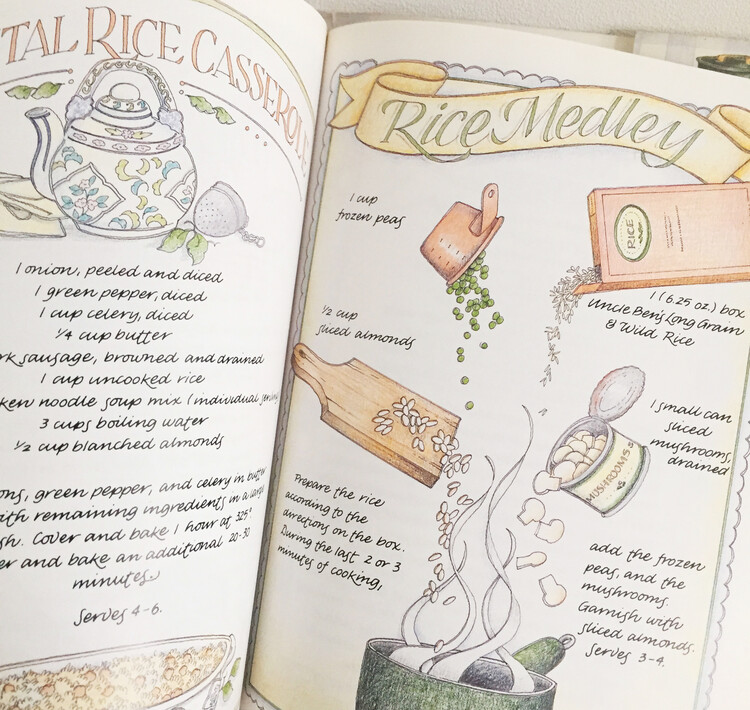 TAL RICE CASSEROLE
1 onion, peeled and diced
1 green pepper, diced
1 cup celery, diced
¼ cup butter
rk sausage, browned and drained
1 cup uncooked rice
ken noodle soup mix (individual
3 cups boiling water
½ cup blanched almonds
ons, green pepper, and celery in butter
ith remaining ingredients in a large
sh. Cover and bake 1 hour at 325°
er and bake an additional 20-30
minutes.
Serves 4-6.
Rice Medley
1 cup
frozen peas
RICE
1 (6.25 oz.) box
Uncle Ben's Long Grain
& Wild Rice
½ cup
sliced almonds
1 small can
sliced
mushrooms,
drained
MUSHROOMS
Prepare the rice
according to the
directions on the box.
During the last 2 or 3
minutes of cooking,
add the frozen
peas, and the
mushrooms.
Garnish with
sliced almonds.
Serves 3-4.